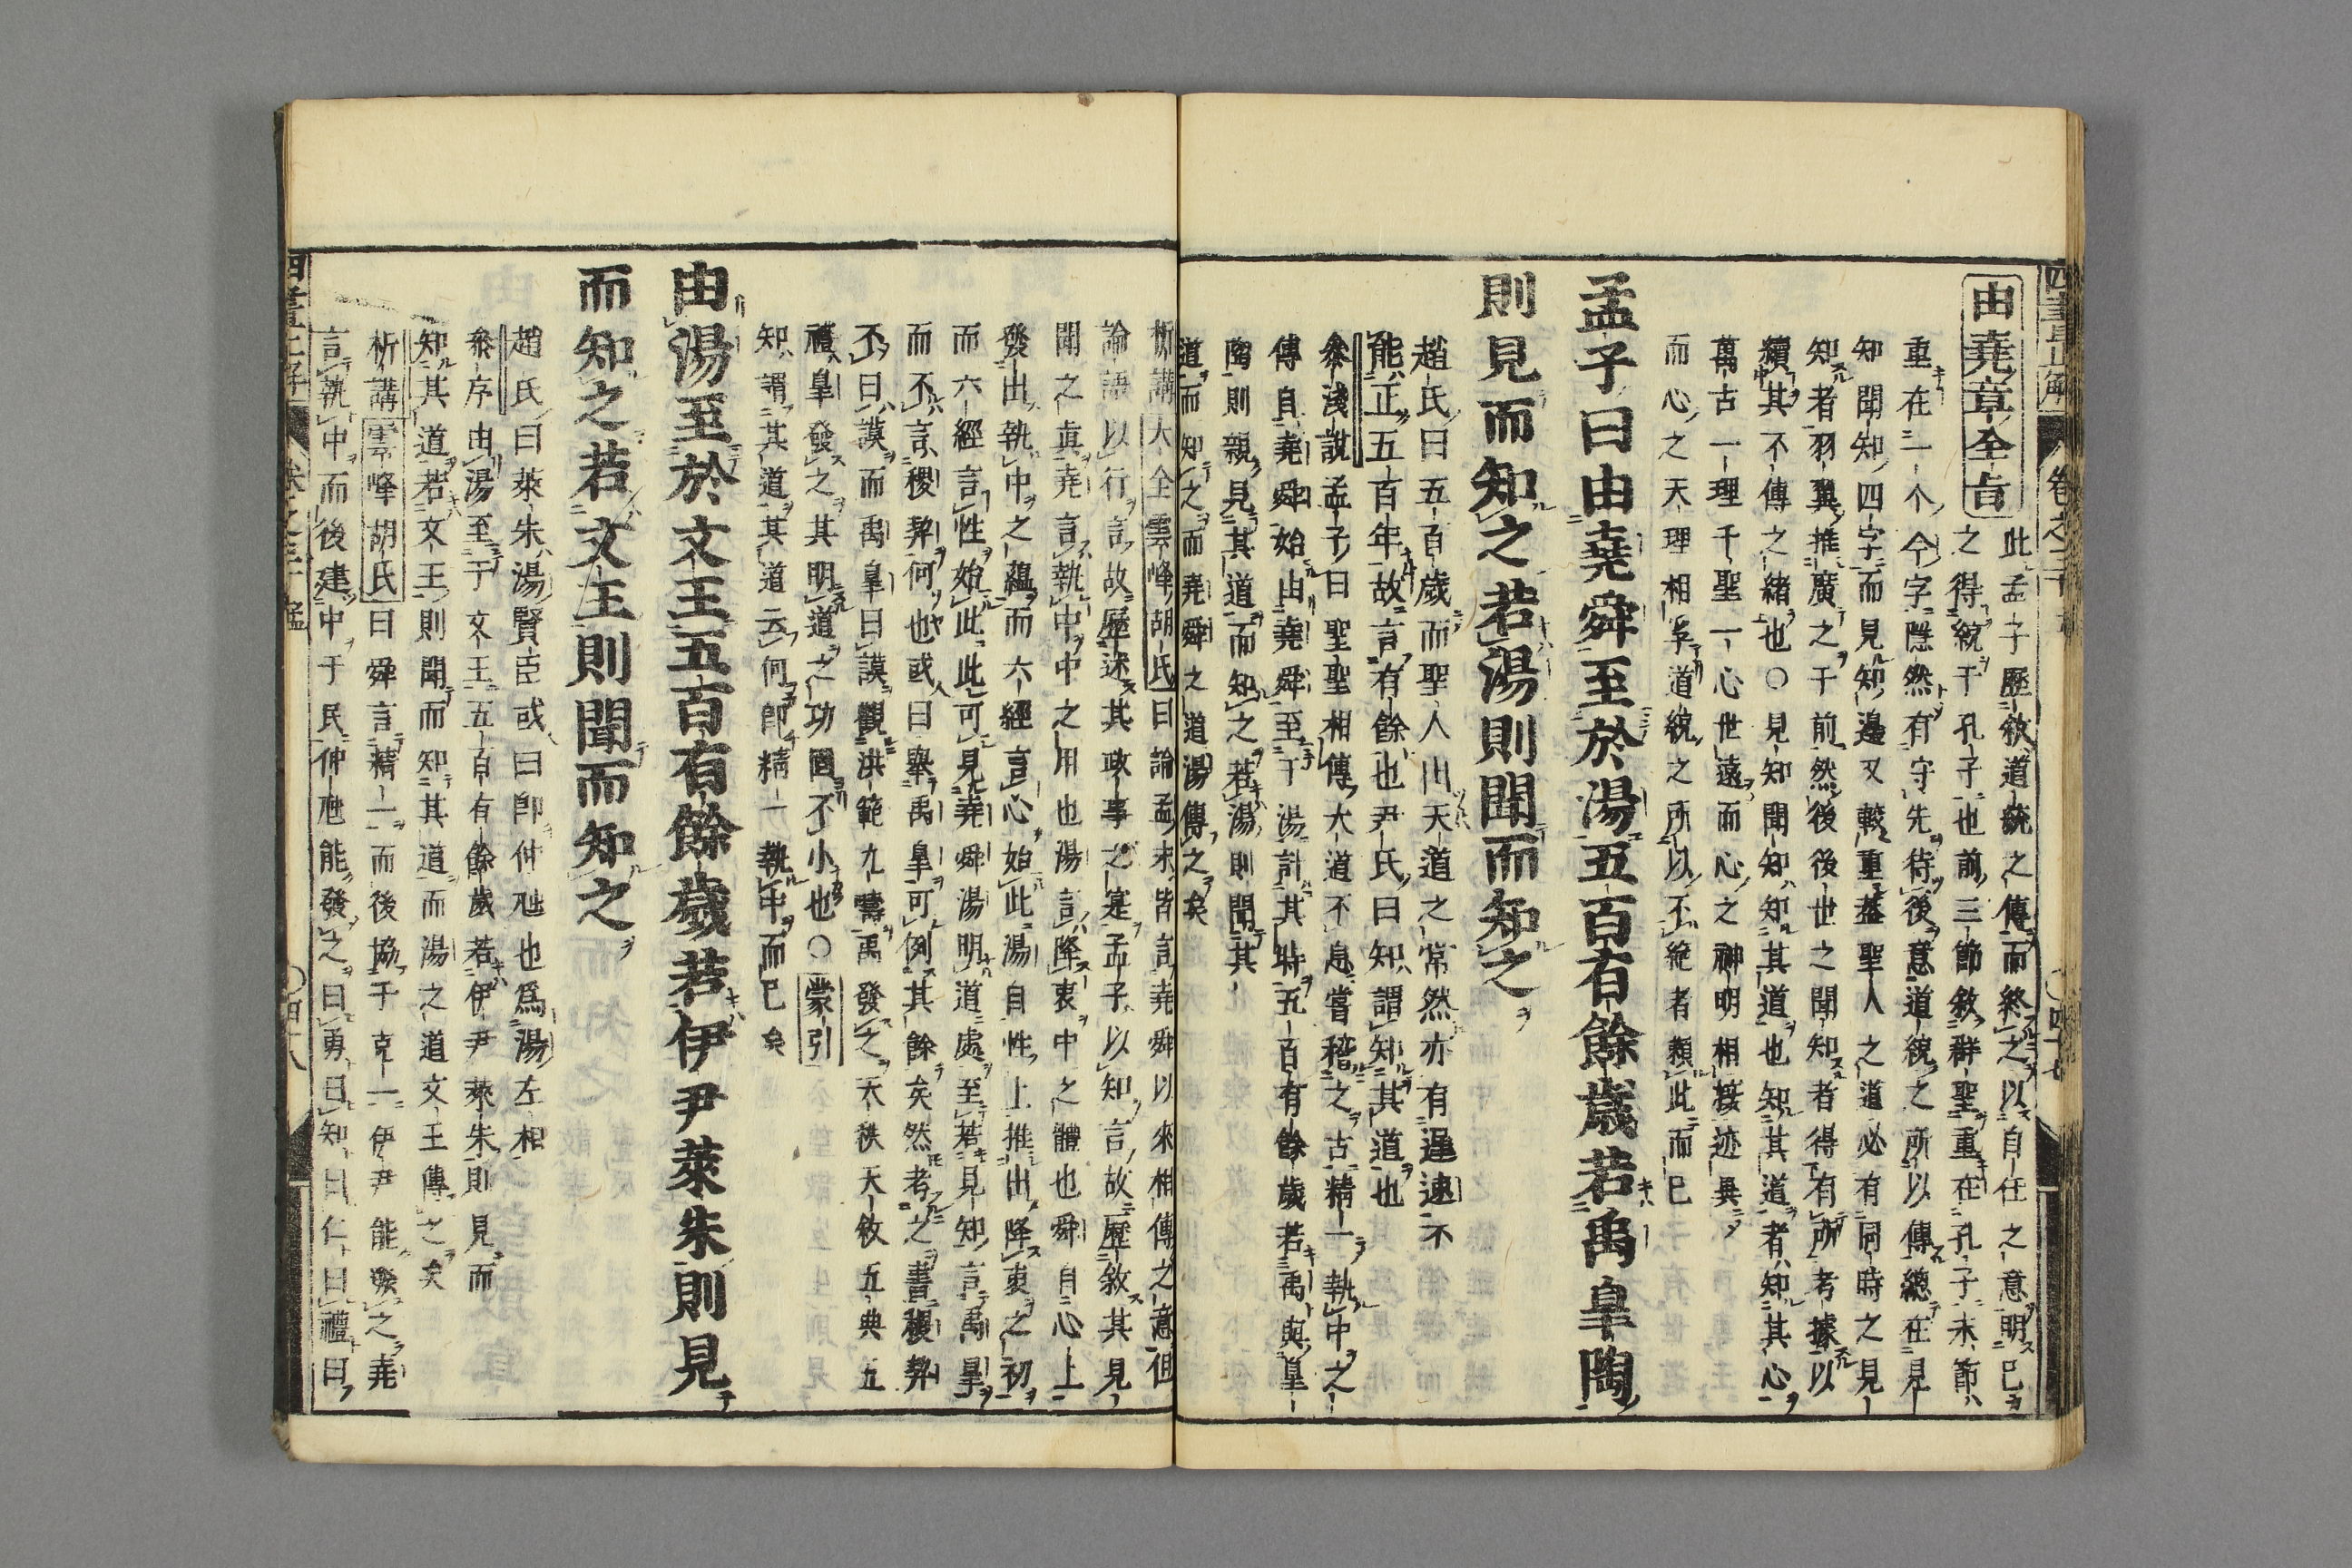 由堯章全旨
此孟子歷敘道統之傳而終之以自任之意明已
之得統于孔子也前三節敘群聖重在孔子末節
重在一个今字隱然有守先待後意道統之所以傳總在見
知聞知四字而見知邊又較重蓋聖人之道必有同時之見
知者羽翼推廣之于前然後後世之聞知者得有所考據以
續其不傳之緒也○見知聞知知其道也知其道者知其心
萬古一理千聖一心世遠而心之神明相接迹異
而心之天理相孚道統之所以不絶者賴此而已
孟子曰由堯舜至於湯五百有餘歲若禹皐陶
則見而知之若湯則聞而知之
趙氏曰五百歲而聖人出天道之常然亦有遲速不
能正五百年故言有餘也尹氏曰知謂知其道也
參淺說孟子曰聖聖相傳大道不息嘗稽之古精一執中之
傳自堯舜始由堯舜至于湯計其時五百有餘歲若禹與皐
陶則親見其道而知之若湯則聞其
道而知之而堯舜之道湯傳之矣
析講大全雲峰胡氏曰論孟末皆言堯舜以來相傳之意但
論語以行言故歷述其政事之寔孟子以知言故歷敘其見
聞之眞堯言執中中之用也湯言降衷中之體也舜自心上
發出執中之蘊而六經言心始此湯自性上推出降衷之初
而六經言性始此此可見堯舜湯明道處至若見知言禹皐
而不言稷契何也或曰舉禹皐可例其餘矣然考之書稷契
不曰謨而禹皐曰謨觀洪範九疇禹發之天秩天敘五典五
禮皐發之其明道之功固不小也○蒙引
知謂其道其道云何卽精一執中而已矣
由湯至於文王五百有餘歲若伊尹萊朱則見
而知之若文王則聞而知之
趙氏曰萊朱湯賢臣或曰卽仲虺也爲湯左相
參序由湯至于文王五百有餘歲若伊尹萊朱則見而
知其道若文王則聞而知其道而湯之道文王傳之矣
析講雲峰胡氏曰舜言精一而後協于克一伊尹能發之堯
言執中而後建中于民仲虺能發之曰勇曰知曰仁曰禮曰